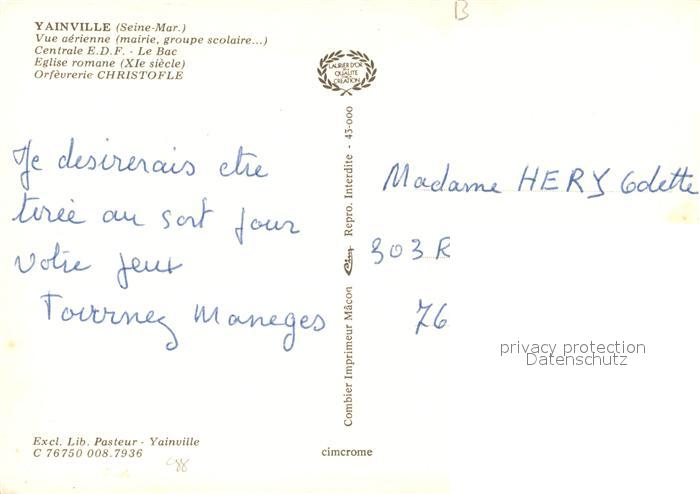 YAINVILLE (Seine-Mar.)
Vue aérienne (mairie, groupe scolaire...)
Centrale E.D.F. - Le Bac
Eglise romane (XIe siècle)
Orfèvrerie CHRISTOFLE
B
LAURIER D'OR
DE LA
QUALITÉ
CRÉATION
Je desirerais etre
tirée au sort pour
votre jeux
Tournez Maneges
Combier Imprimeur Mâcon Cim Repro. Interdite - 43-000
Madame HERY Odette
303 R
76
privacy protection
Datenschutz
Excl. Lib. Pasteur - Yainville
C 76750 008.7936
cimcrome